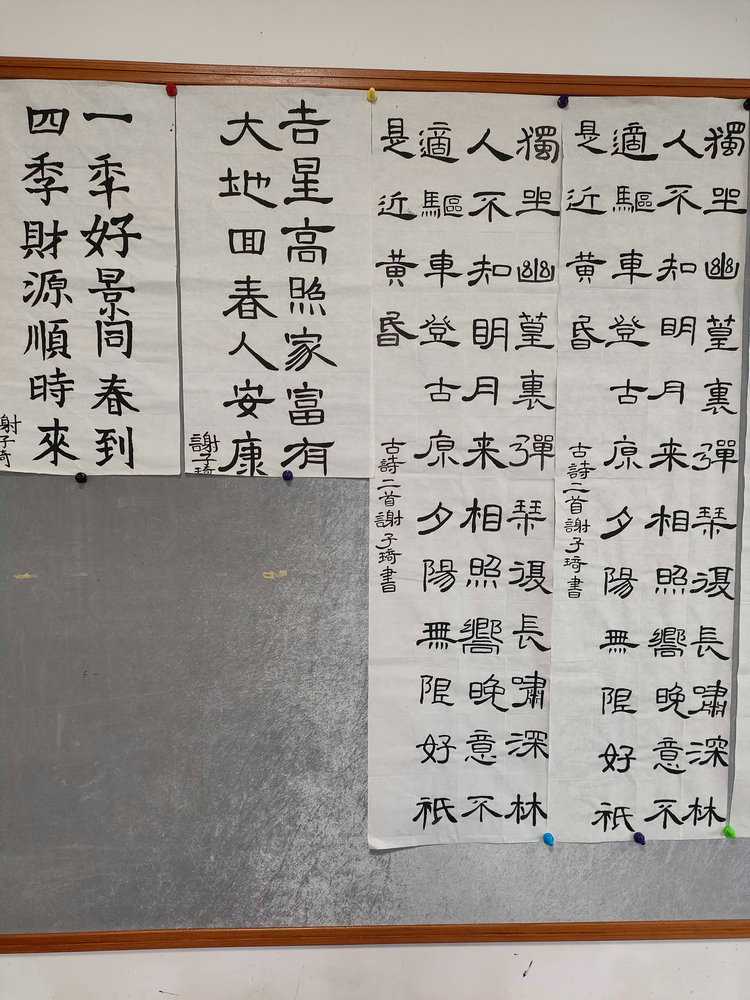 獨坐幽篁裏彈琹復長嘯深林
人不知明月来相照嚮晚意不
適驅車登古原夕陽無限好祇
是近黄昏
古詩二首謝子琦書
獨坐幽篁裏彈琹復長嘯深林
人不知明月来相照嚮晚意不
適驅車登古原夕陽無限好祇
是近黄昏
古詩二首謝子琦書
吉星高照家富有
大地回春人安康
謝子琦
一年好景同春到
四季財源順時來
謝子琦